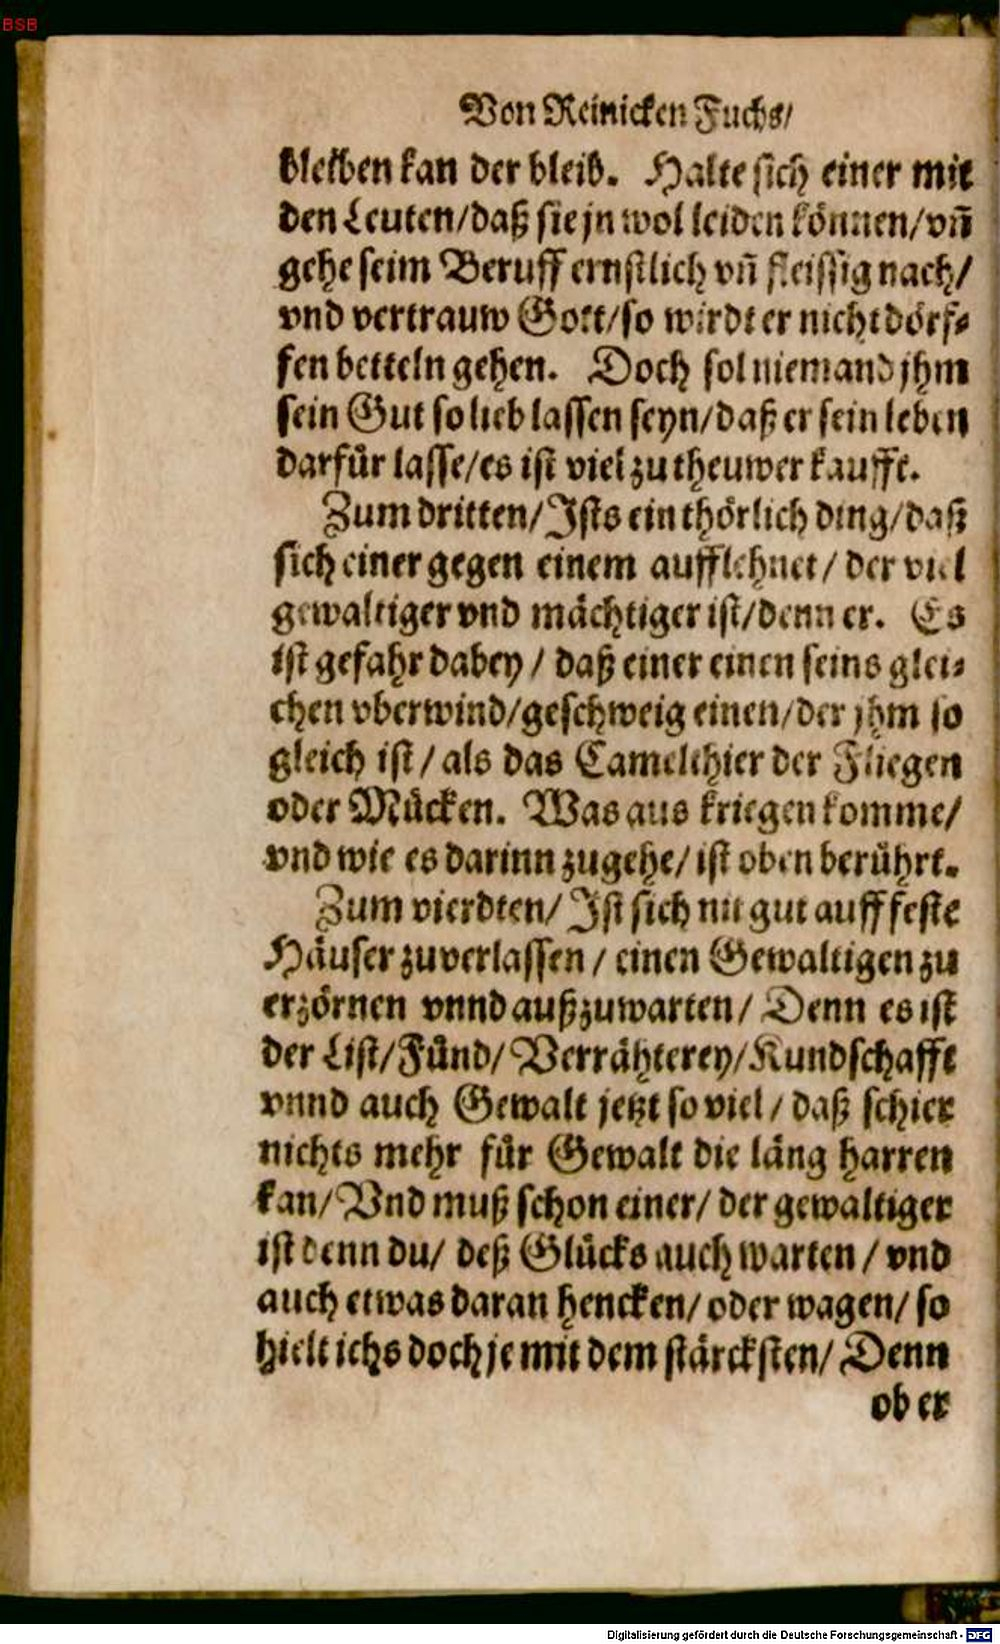 BSB
Von Reinicken Fuchs/
bleiben kan der bleib. Halte sich einer mit
den Leuten/daß sie jn wol leiden können/vñ
gehe seim Beruff ernstlich vñ fleissig nach/
vnd vertrauw Gott/so wirdt er nicht dörf⸗
fen betteln gehen. Doch sol niemand jhm
sein Gut so lieb lassen seyn/daß er sein leben
darfür lasse/es ist viel zu theuwer kaufft.
Zum dritten/Ists ein thörlich ding/daß
sich einer gegen einem aufflehnet/ der viel
gewaltiger vnd mächtiger ist/denn er. Es
ist gefahr dabey/ daß einer einen seins glei⸗
chen vberwind/geschweig einen/der jhm so
gleich ist/ als das Camelthier der Fliegen
oder Mücken. Was aus kriegen komme/
vnd wie es darinn zugehe/ ist oben berührt.
Zum vierdten/ Ist sich nit gut auff feste
Häuser zuverlassen/ einen Gewaltigen zu
erzörnen vnnd außzuwarten/ Denn es ist
der List/Fünd/Verrähterey/Kundschafft
vnnd auch Gewalt jetzt so viel/ daß schier
nichts mehr für Gewalt die läng harren
kan/Vnd muß schon einer/ der gewaltiger
ist denn du/ deß Glücks auch warten/ vnd
auch etwas daran hencken/ oder wagen/ so
hielt ichs doch je mit dem stärcksten/ Denn
ob er
Digitalisierung gefördert durch die Deutsche Forschungsgemeinschaft - DFG